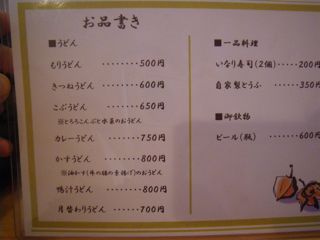 お品書き
■うどん
もりうどん ········500円
きつねうどん ······600円
こぶうどん ·······650円
※とろろこんぶと水菜のおうどん
カレーうどん ······750円
かすうどん ·······800円
※油かす(牛の腸の素揚げ)のおうどん
鴨汁うどん ·······800円
月替わりうどん ·····700円
■一品料理
いなり寿司(2個) ····200円
自家製とうふ ·····350
■御飲物
ビール(瓶) ······600